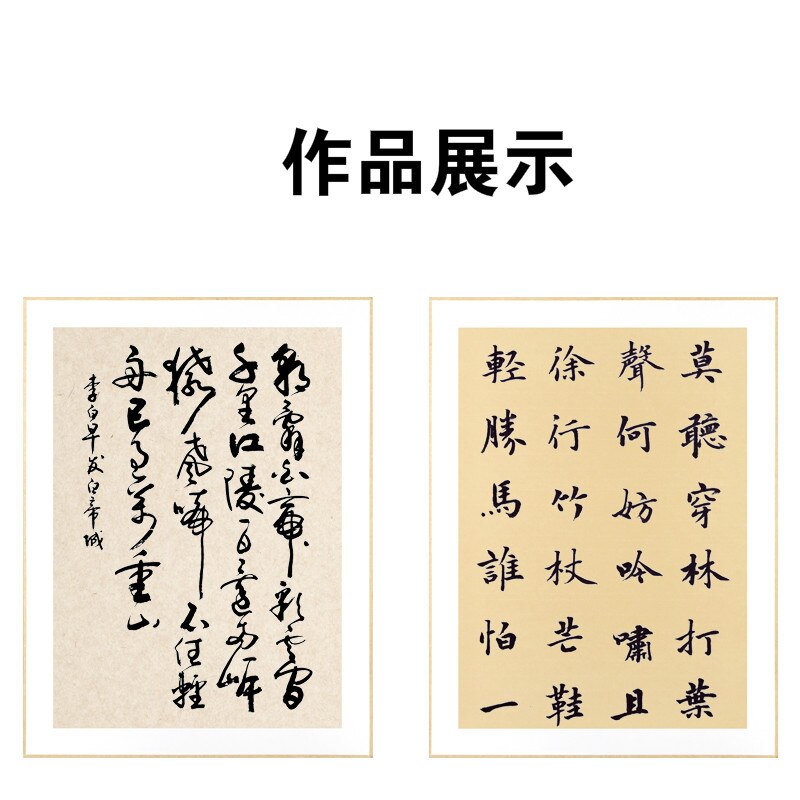 作品展示
朝辭白帝彩雲間
千里江陵一日還两岸
猿聲啼不住輕
舟已過萬重山
李白早发白帝城
莫聽穿林打葉
聲何妨吟嘯且
徐行竹杖芒鞋
輕勝馬誰怕一